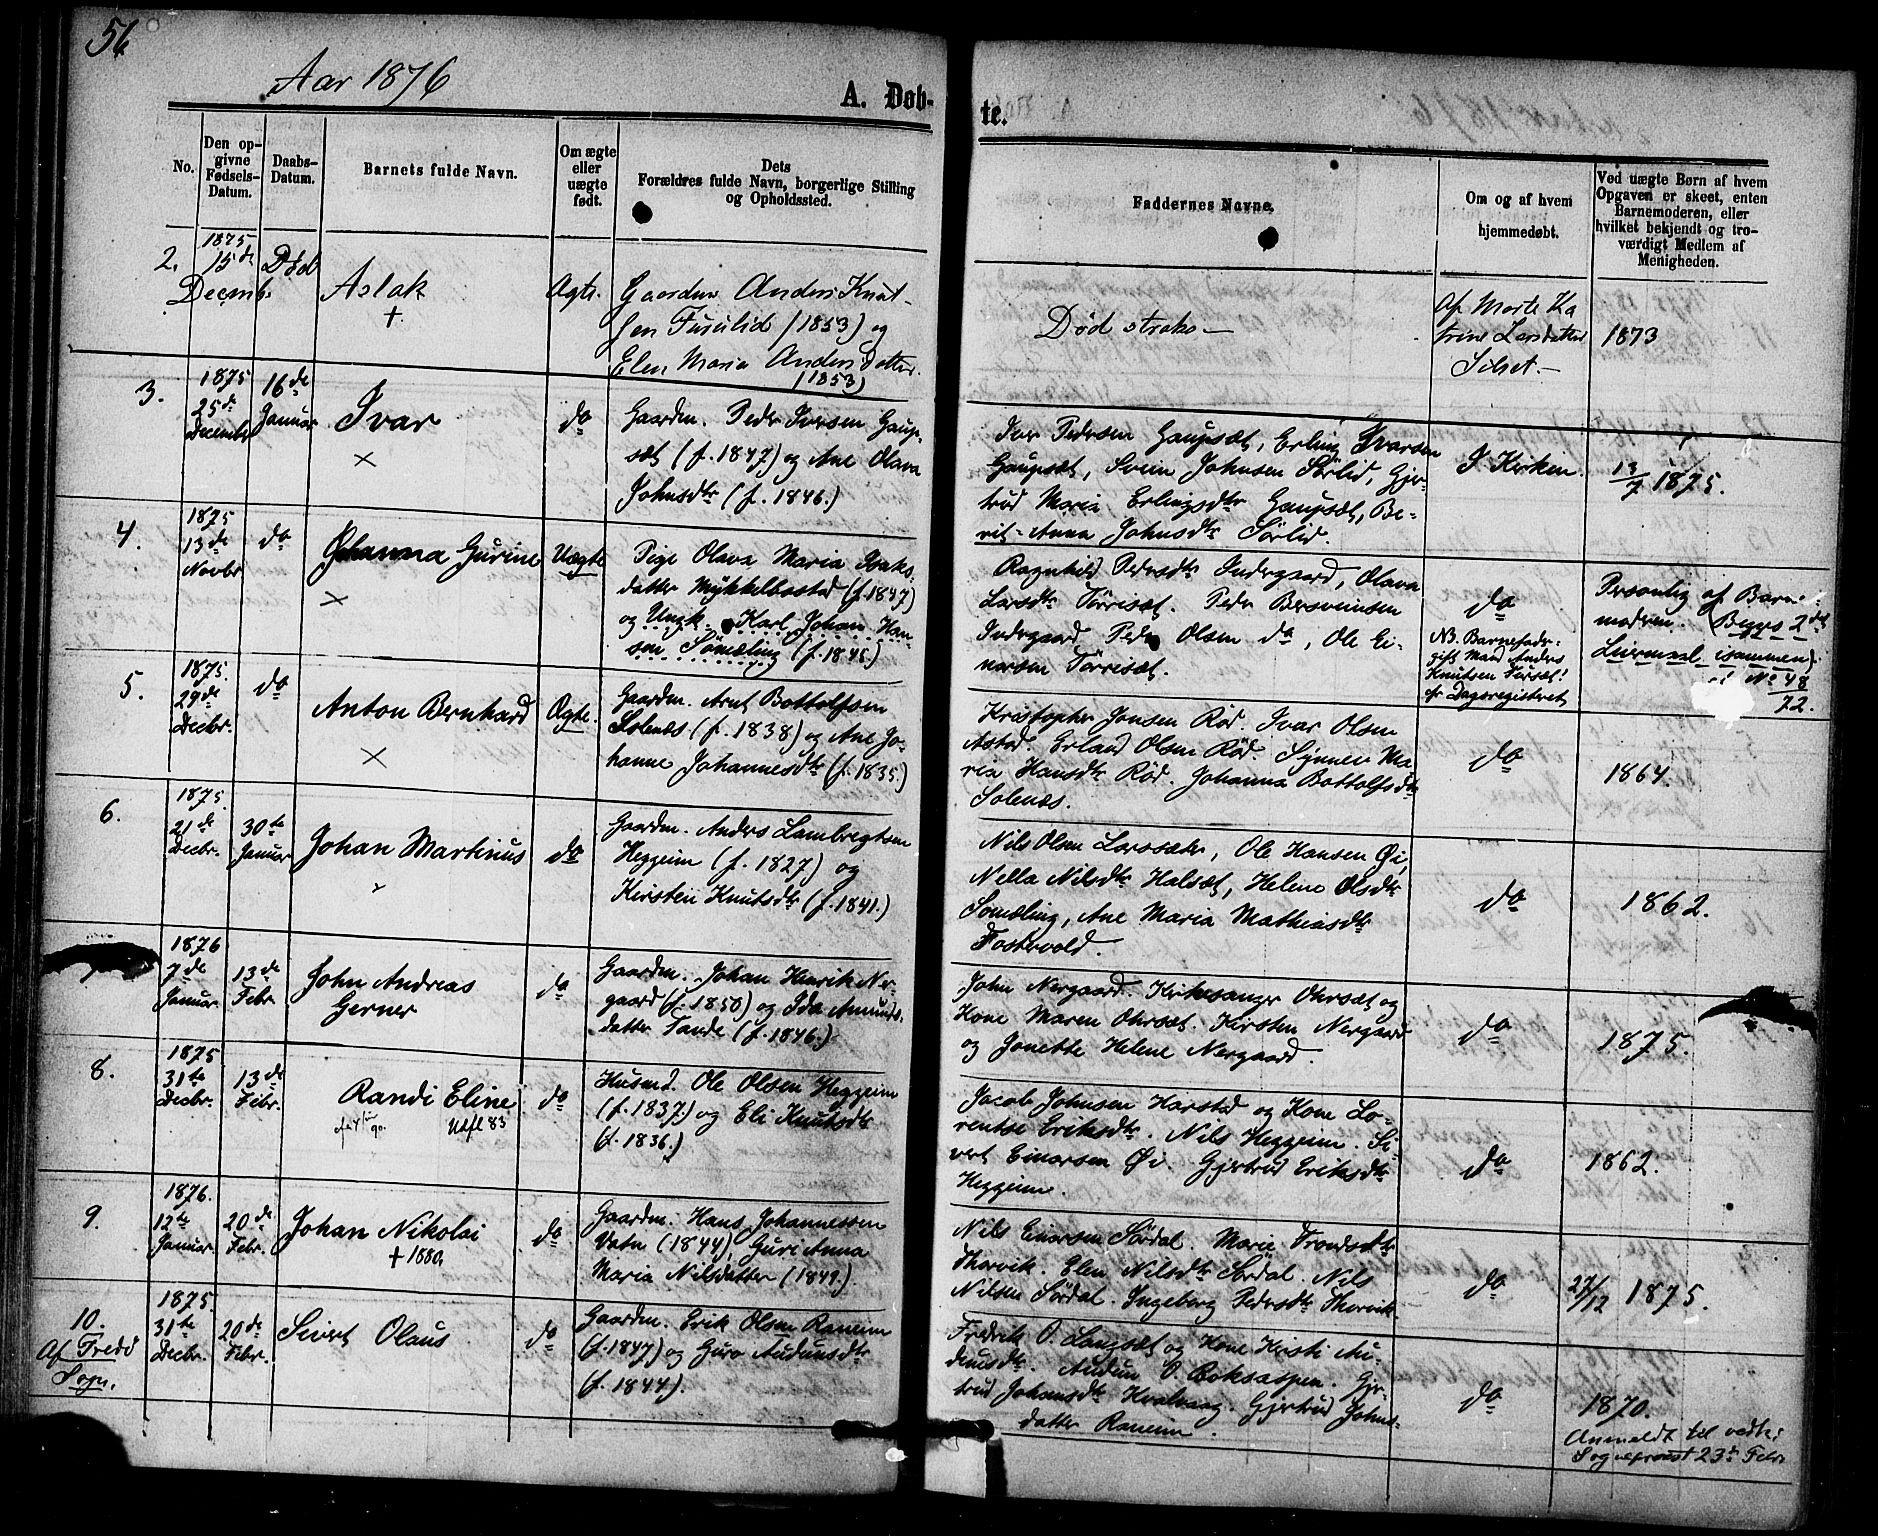 56
Aar 1876
A. Døb-
te.
No.
Den op-
givne
Fødsels-
Datum.
Daabs-
Datum.
Barnets fulde Navn.
Om ægte
eller
uægte
født.
Dets
Forældres fulde Navn, borgerlige Stilling
og Opholdssted.
Faddernes Navne.
Om og af hvem
hjemmedøbt.
Ved uægte Børn af hvem
Opgaven er skeet, enten
Barnemoderen, eller
hvilket bekjendt og tro-
værdigt Medlem af
Menigheden.
2.
1875
15de
Decemb.
Død
Aslak
+
Ægte.
Gaardm Anders Knut-
sen Fursetlid (1853) og
Elen Maria Andersdatter
(1853)
Død straks –
Af Marte Ka
trine Larsdatter
Silset. –
1873
3.
1875
25de
December
16de
Januar
Ivar
×
do
Gaardm. Peder Iversen Gaup-
sæt (f. 1847) og Ane Olava
Johnsdtr (f. 1846.)
Iver Pedersen Gaupsæt, Erling Ivarsen
Gaupsæt, Svein Johnsen Sørlid, Gjer-
trud Maria Erlingsdtr Gaupsæt, Be-
rit-Anna Johnsdtr Sørlid.
I Kirken.
13/7 1875.
4.
1875
13de
Novbr
do
Johanna Gurine
×
Uægte
Pige Olava Maria Isaks-
datter Mykkelbostad (f. 1847)
og Ungk. Karl Johan Han-
sen Sømæling (f. 1845.)
Ragnhild Pedersdtr Indergaard, Olava
Larsdtr Tørrisæt. Peder Bersveinsen
Indergaard Peder Olsen do, Ole Ei-
narsen Tørrisæt.
do
NB. Barnefader
gift Mand Anders
Knutsen Furset!
cfr Dagsregisteret
Personlig af Barne-
moderen. Begges 2det
Leiermaal isammen,
No 48
72.
5.
1875.
29de
Decbr.
do
Anton Bernhard
×
Ægte.
Gaardm. Arnt Bottolfsen
Solenes (f. 1838) og Ane Jo-
hanne Johannesdtr (f. 1835.)
Kristopher Jonsen Rød. Ivar Olsen
Astad. Erland Olsen Rød. Synnev Ma-
ria Hansdtr Rød. Johanna Bottolfsdtr
Solenes.
do
1864.
6.
1875.
21de
Decbr.
30te
Januar
Johan Martinus
do
Gaardm. Anders Lambregtsen
Heggeim (f. 1827) og
Kirsten Knutsdtr (f. 1841.)
Nils Olsen Larssæter, Ole Hansen Øi,
Nella Nilsdtr Halsæt, Helene Olsdtr
Sømæling, Ane Maria Mathiasdtr
Fostervold.
do
1862.
1876
7de
Januar
13de
Febr.
John Andreas
Gerner
do
Gaardm. Johan Henrik Ner-
gaard (f. 1850) og Ida Amunds-
datter Tande (f. 1846.)
John Nergaard. Kirkesanger Ohrsæt og
Kone Maren Ohrsæt. Kirsten Nergaard
og Jonette Helene Nergaard.
do
1875.
8.
1875
31te
Decbr.
13de
Febr.
Randi Eline
Utfl 83
do
Husmd. Ole Olsen Heggeim
(f. 1837.) og Eli Knutsdtr
(f. 1836.)
Jacob Johnsen Harstad og Kone Lo-
rentse Eriksdtr. Nils Heggeim. Si-
vert Einarsen Øi. Gjertrud Eriksdtr
Heggeim.
do
1862.
9.
1876.
12te
Januar
20de
Febr.
Johan Nikolai
+ 1880.
do
Gaardm. Hans Johannessen
Vatn (1844), Guri Anna
Maria Nilsdatter (1849.)
Nils Einarsen Sørdal. Marie Trondsdtr
Thorvik. Elen Nilsdtr Sørdal. Nils
Nilsen Sørdal. Ingeborg Pedersdtr Thorvik
do
27/12 1875.
10.
Af Fredø
Sogn.
1875.
31te
Decbr.
20de
Febr.
Sivert Olaus
do
Gaardm. Erik Olsen Raneim
(f. 1847) og Guro Audunsdtr
(f. 1844).
Fredrik O. Langsæt og Kone Kristi Au-
dunsdtr. Audun O. Boksaspen. Gjer-
trud Johansdtr Kvalvaag. Gjertrud Johns-
datter Raneim.
do
1870.
Anmeldt til vedk:
Sogneprest 23de Febr